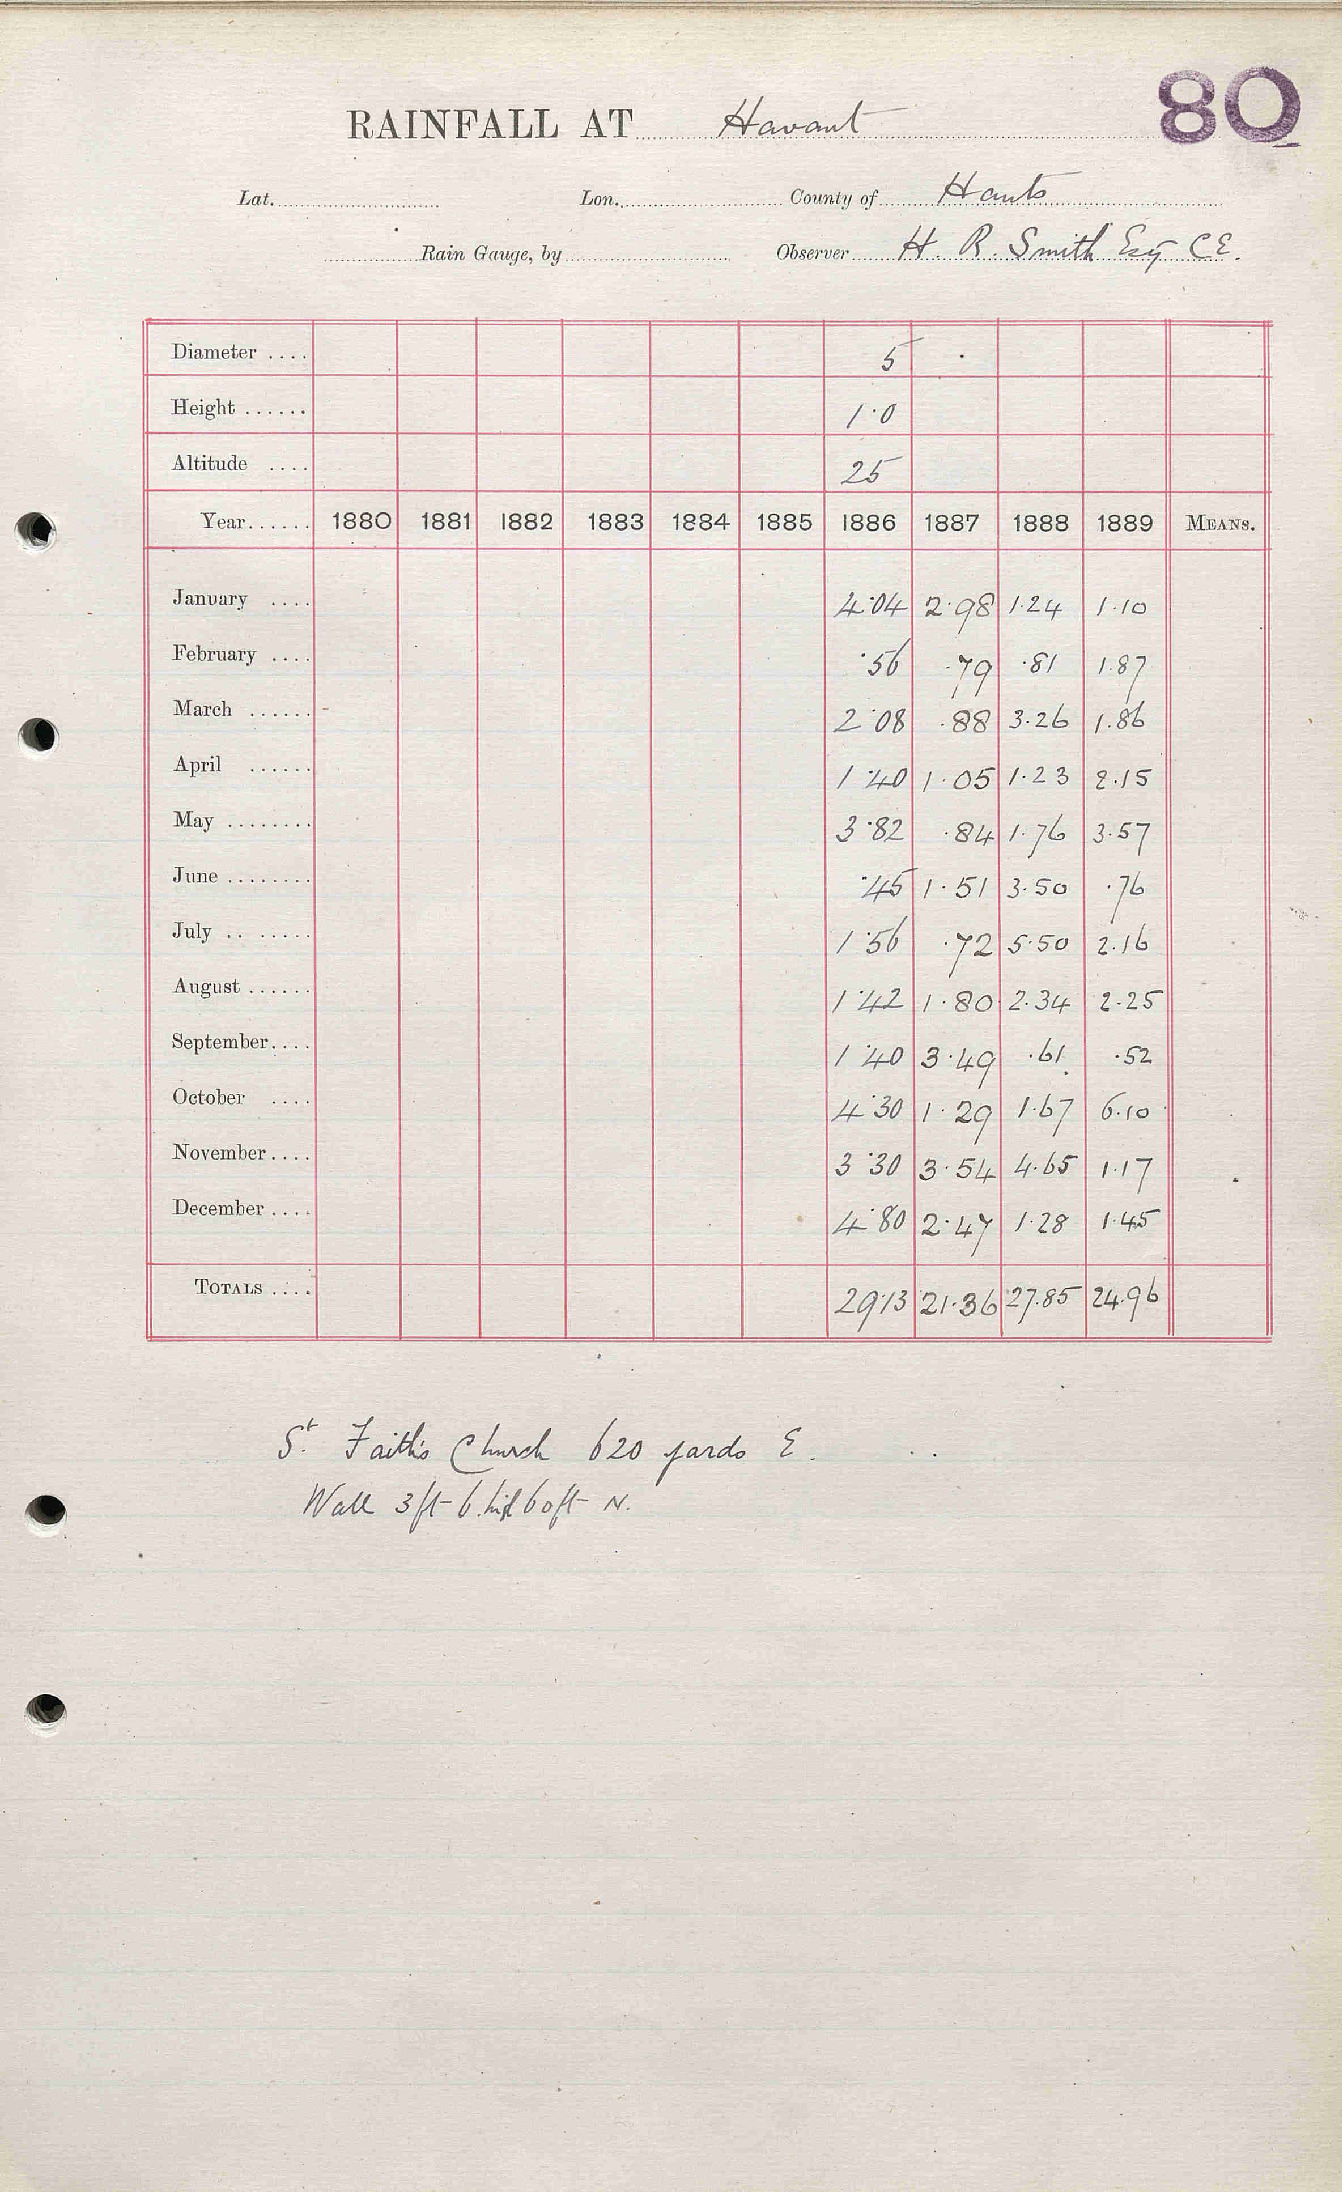 80
RAINFALL AT Havant
Lat. Lon. County of Hants
Rain Gauge, by Observer H. R. Smith Esq CE.
Diameter .... 5
Height ...... 1.0
Altitude .... 25
Year...... 1880 1881 1882 1883 1884 1885 1886 1887 1888 1889 MEANS.
January .... 4.04 2.98 1.24 1.10
February .... .56 .79 .81 1.87
March ...... 2.08 .88 3.26 1.86
April ...... 1.40 1.05 1.23 2.15
May ........ 3.82 .84 1.76 3.57
June ........ .45 1.51 3.50 .76
July .. ...... 1.56 .72 5.50 2.16
August ...... 1.42 1.80 2.34 2.25
September.... 1.40 3.49 .61 .52
October .... 4.30 1.29 1.67 6.10
November.... 3.30 3.54 4.65 1.17
December .... 4.80 2.47 1.28 1.45
TOTALS .... 29.13 21.36 27.85 24.96
St. Faith's Church 620 yards E.
Wall 3ft 6. high 60ft N.